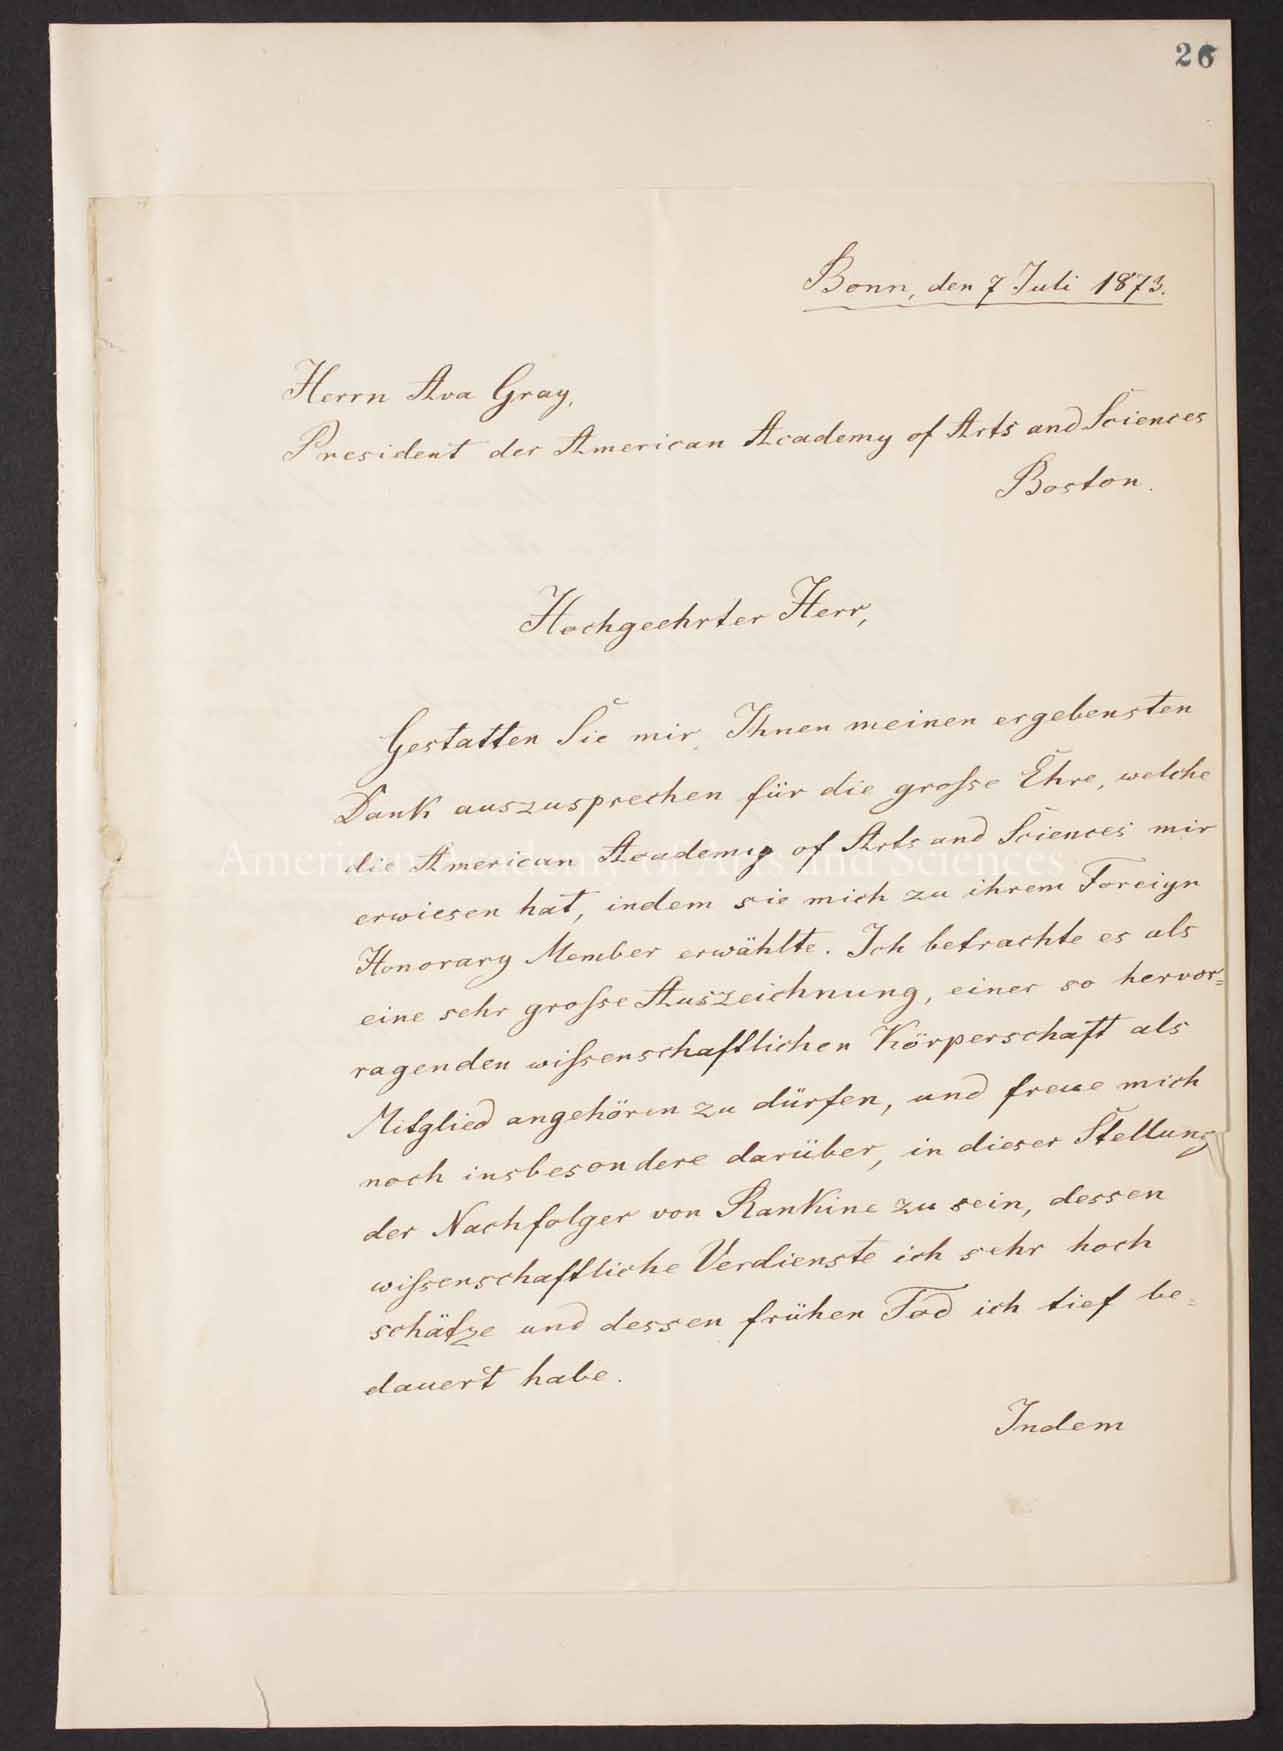 26
Bonn, den 7 Juli 1873.
Herrn Ava Gray,
President der American Academy of Arts and Sciences
Boston.
Hochgeehrter Herr,
Gestatten Sie mir, Ihnen meinen ergebensten
Dank auszusprechen für die große Ehre, welche
die American Academy of Arts and Sciences mir
American Academy of Arts and Sciences
erwiesen hat, indem sie mich zu ihrem Foreign
Honorary Member erwählte. Ich betrachte es als
eine sehr große Auszeichnung, einer so hervor=
ragenden wißenschaftlichen Körperschaft als
Mitglied angehören zu dürfen, und freue mich
noch insbesondere darüber, in dieser Stellung
der Nachfolger von Rankine zu sein, dessen
wißenschaftliche Verdienste ich sehr hoch
schätze und dessen frühen Tod ich tief be=
dauert habe.
Indem